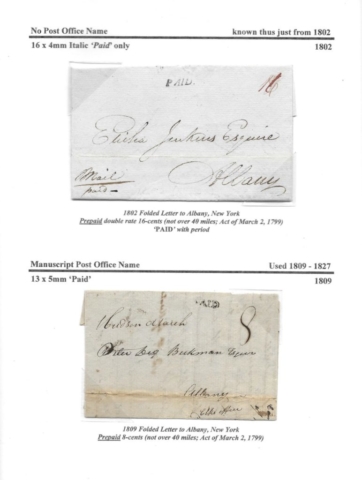 No Post Office Name known thus just from 1802
16 x 4mm Italic 'Paid' only 1802
PAID.
16
Elisha Jenkins Esquire
Mail
paid
Albany
1802 Folded Letter to Albany, New York
Prepaid double rate 16-cents (not over 40 miles; Act of March 2, 1799)
'PAID' with period
Manuscript Post Office Name Used 1809 - 1827
13 x 5mm 'Paid' 1809
PAID
Hudson March 8
Peter Beekman
Albany
1809 Folded Letter to Albany, New York
Prepaid 8-cents (not over 40 miles; Act of March 2, 1799)